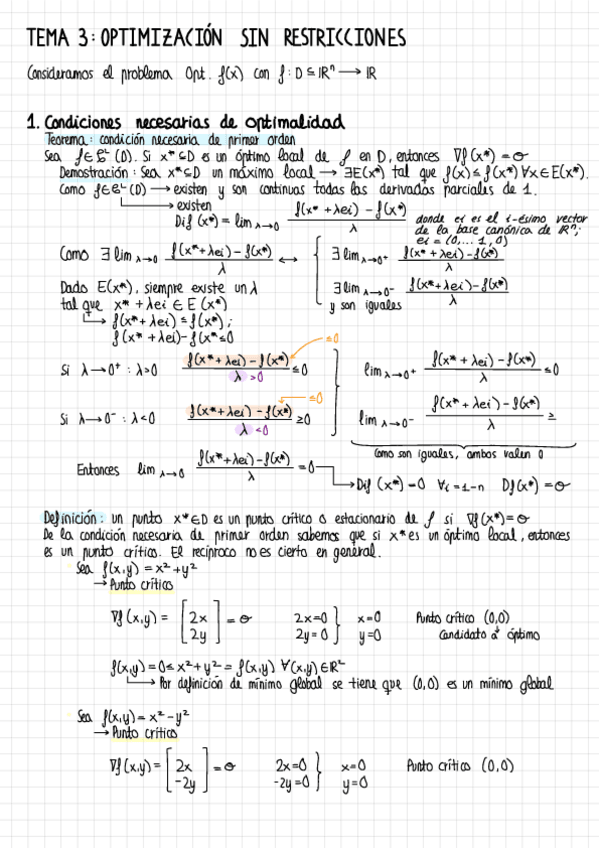 TEMA 3: OPTIMIZACIÓN SIN RESTRICCIONES
Consideramos el problema Opt. f(x) con f: D ⊆ ℝⁿ ⟶ ℝ
1. Condiciones necesarias de optimalidad
Teorema: condición necesaria de primer orden
Sea f ∈ C¹ (D). Si x* ⊆ D es un óptimo local de f en D, entonces ∇f(x*) = θ
Demostración: Sea x* ⊆ D un máximo local → ∃E(x*) tal que f(x) ≤ f(x*) ∀x ∈ E(x*).
Como f ∈ C¹ (D) → existen y son continuas todas las derivadas parciales de 1.
→ existen
Dif (x*) = lim λ→0 (f(x* + λei) - f(x*)) / λ
donde ei es el i-ésimo vector
de la base canónica de ℝⁿ;
ei = (0,... 1, 0)
Como ∃ lim λ→0 (f(x* + λei) - f(x*)) / λ ↔ { ∃ lim λ→0⁺ (f(x* + λei) - f(x*)) / λ
Dado E(x*), siempre existe un λ
∃ lim λ→0⁻ (f(x* + λei) - f(x*)) / λ
tal que x* + λei ∈ E(x*)
y son iguales
→ f(x* + λei) ≤ f(x*);
f(x* + λei) - f(x*) ≤ 0
≤0
Si λ→0⁺ : λ>0 (f(x* + λei) - f(x*)) / λ >0 ≤0
lim λ→0⁺ (f(x* + λei) - f(x*)) / λ ≤0
≤0
Si λ→0⁻ : λ<0 (f(x* + λei) - f(x*)) / λ <0 ≥0
lim λ→0⁻ (f(x* + λei) - f(x*)) / λ ≥
Como son iguales, ambos valen 0
Entonces lim λ→0 (f(x* + λei) - f(x*)) / λ = 0
→ Dif (x*) = 0 ∀i = 1-n Df(x*) = θ
Definición: un punto x* ∈ D es un punto crítico o estacionario de f si ∇f(x*) = θ
De la condición necesaria de primer orden sabemos que si x* es un óptimo local, entonces
es un punto crítico. El recíproco no es cierto en general.
Sea f(x,y) = x² + y²
→ Punto crítico
∇f(x,y) = [2x 2y] = θ 2x=0 2y=0 } x=0 y=0 Punto crítico (0,0)
Candidato a óptimo
f(x,y) = 0 ≤ x² + y² = f(x,y) ∀(x,y) ∈ ℝ²
→ Por definición de mínimo global se tiene que (0,0) es un mínimo global
Sea f(x,y) = x² - y²
→ Punto crítico
∇f(x,y) = [2x -2y] = θ 2x=0 -2y=0 } x=0 y=0 Punto crítico (0,0)